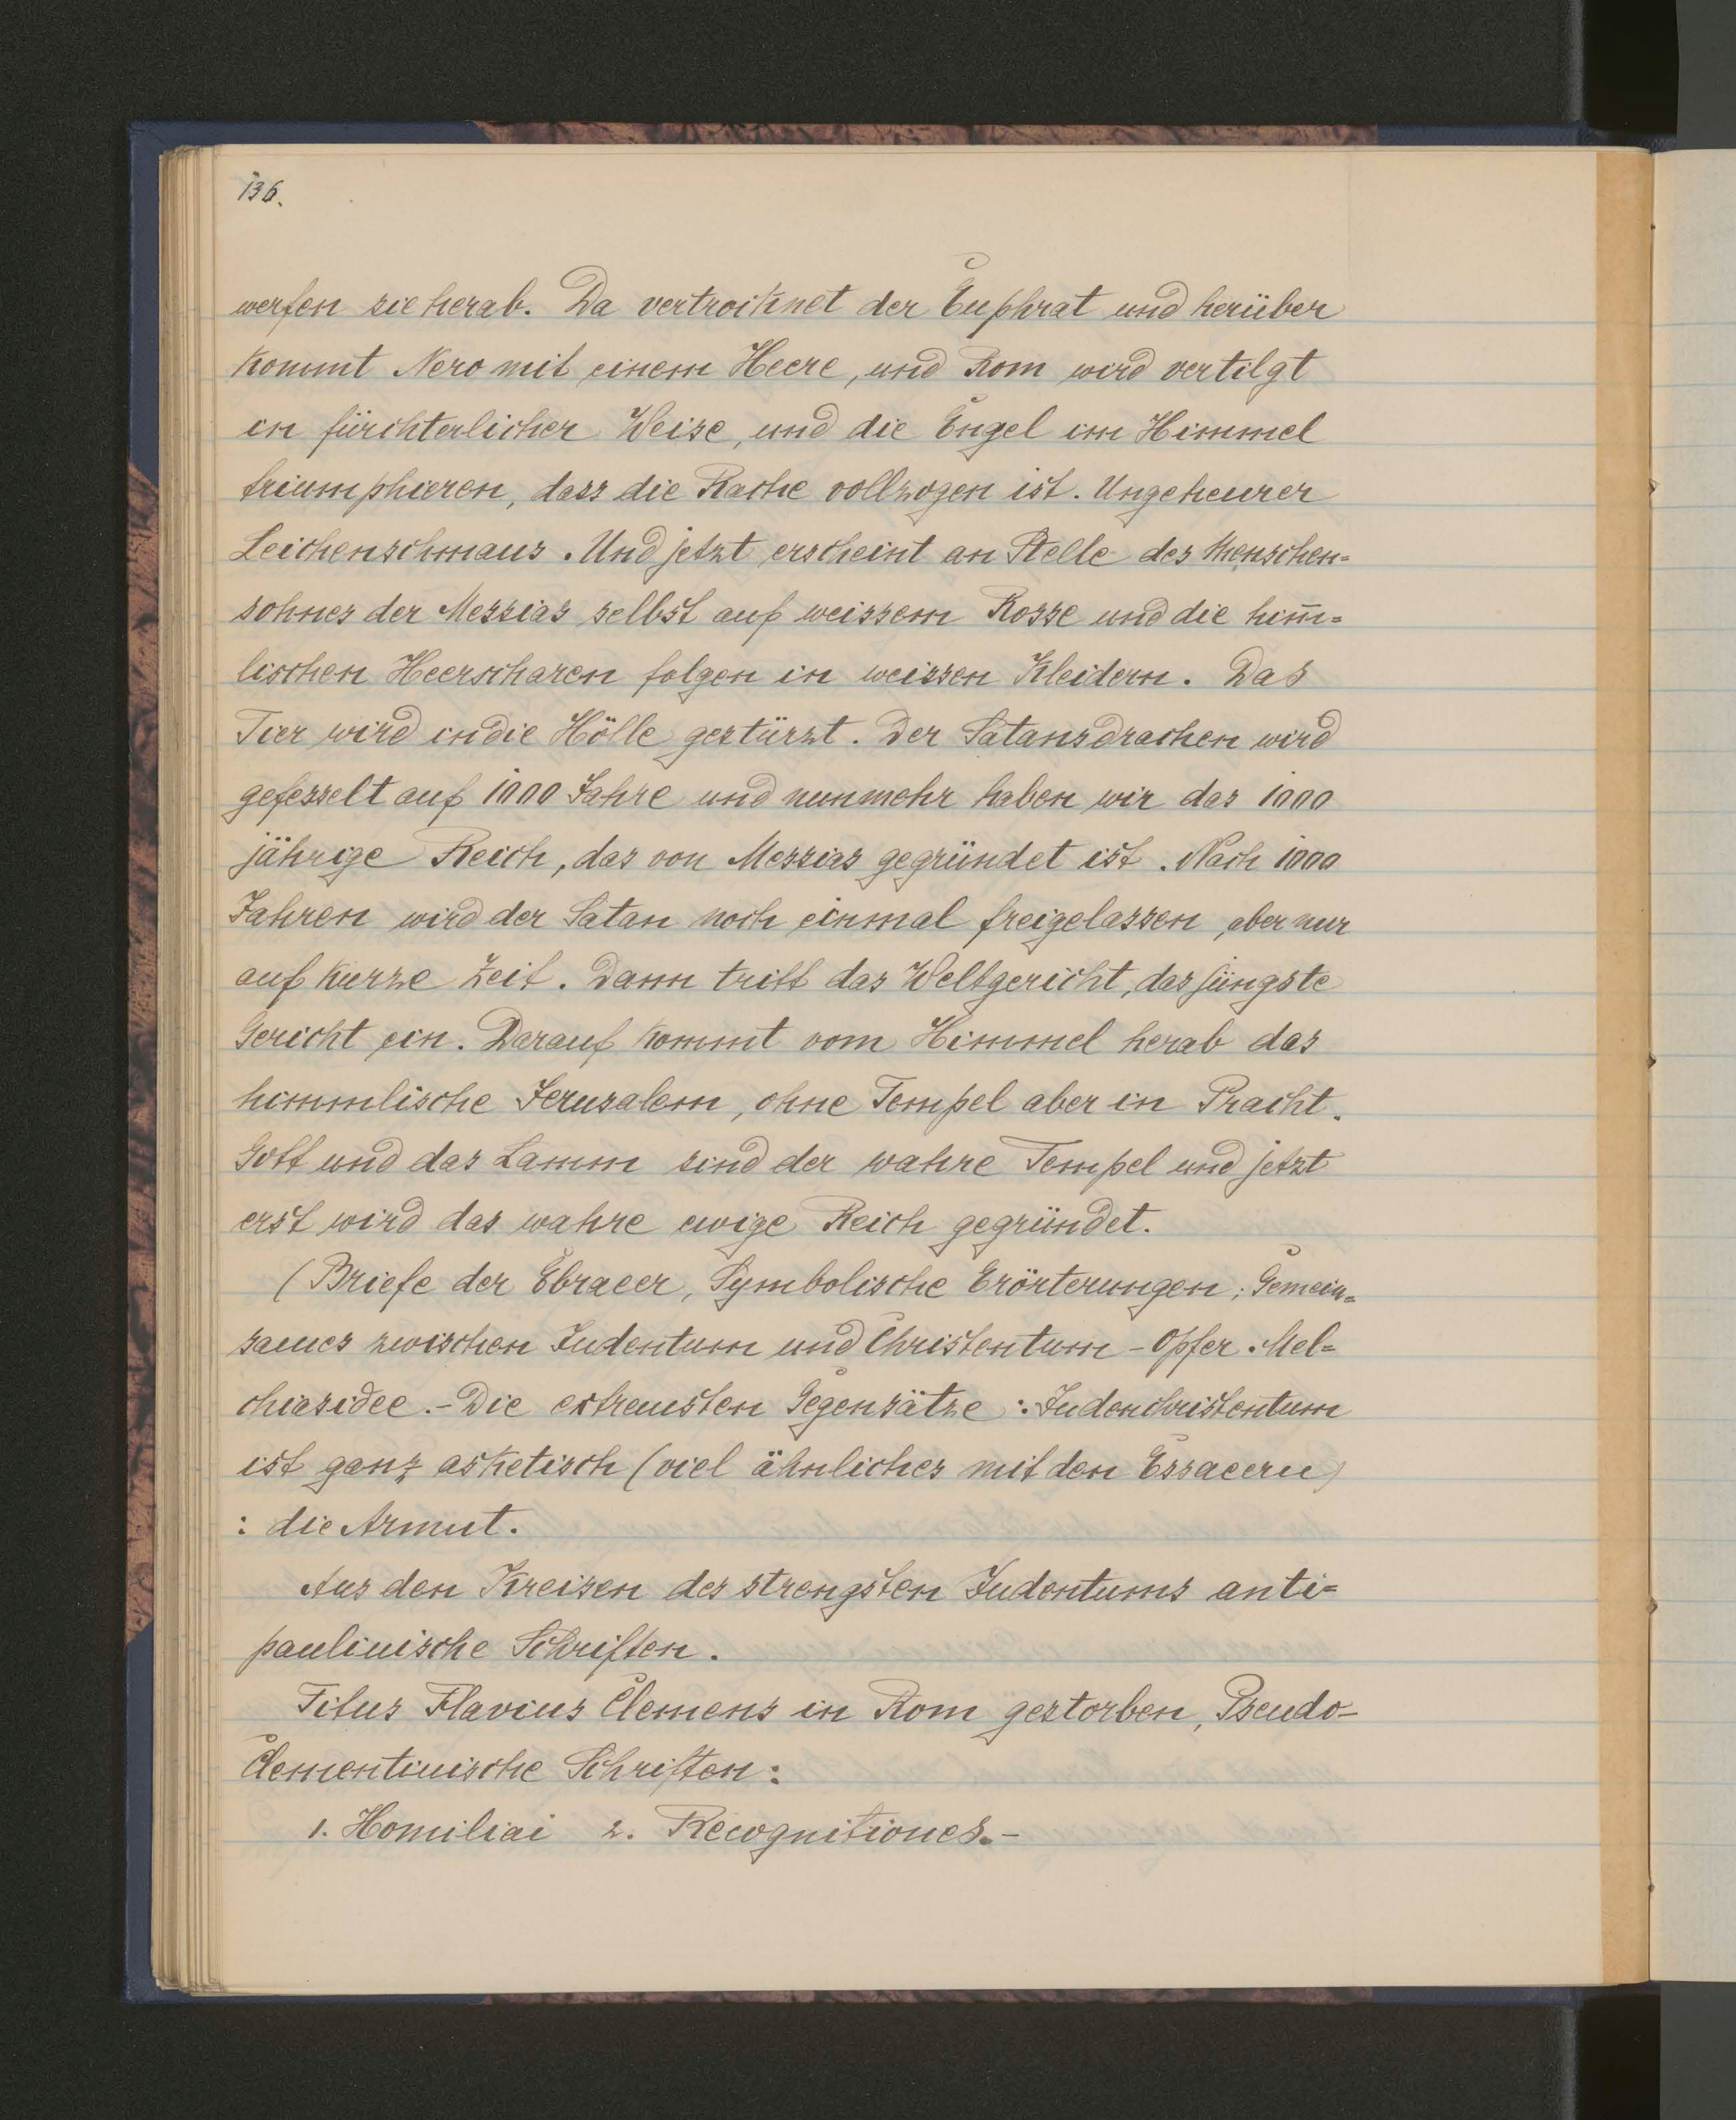 136.
werfen sie herab. Da vertrocknet der Euphrat und herüber
kommt Nero mit einem Heere, und Rom wird vertilgt
in fürchterlicher Weise, und die Engel im Himmel
triumphieren, dass die Rache vollzogen ist. Ungeheurer
Leichenschmaus. Und jetzt erscheint an Stelle des Menschen=
sohnes der Messias selbst auf weissem Rosse und die him̅=
lischen Heerscharen folgen in weissen Kleidern. Das
Tier wird in die Hölle gestürzt. Der Satansdrachen wird
gefesselt auf 1000 Jahre und nunmehr haben wir das 1000
jährige Reich, das von Messias gegründet ist. Nach 1000
Jahren wird der Satan noch einmal freigelassen, aber nur
auf kurze Zeit. Dann tritt das Weltgericht, das jüngste
Gericht ein. Darauf kommt vom Himmel herab das
himmlische Jerusalem, ohne Tempel aber in Pracht.
Gott und das Lamm sind der wahre Tempel und jetzt
erst wird das wahre ewige Reich gegründet.
(Briefe der Ebraeer, Symbolische Erörterungen; Gemein=
sames zwischen Judentum und Christentum - Opfer. Mel=
chiasidee. - Die extremsten Gegensätze: Judenchristentum
ist ganz asketisch (viel ähnliches mit den Essaeern)
: die Armut.
Aus den Kreisen des strengsten Judentums anti=
paulinische Schriften.
Titus Flavius Clemens in Rom gestorben, Pseudo-
Clementinische Schriften:
1. Homiliai 2. Recognitiones.-